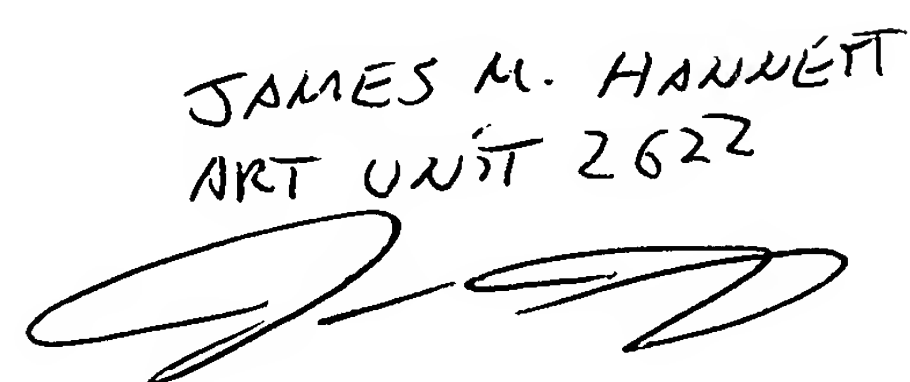 JAMES M. HANNETT
ART UNIT 2622